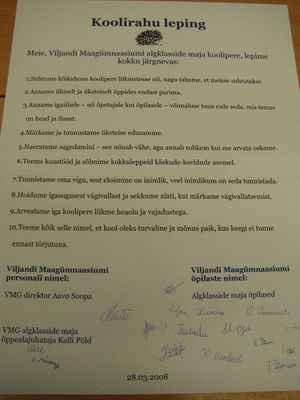 Koolirahu leping
Meie, Viljandi Maagümnaasiumi algklasside maja koolipere, lepime
kokku järgnevas:
1.Suhtume kõikidesse koolipere liikmetesse nii, nagu tahame, et meisse suhtutakse.
2.Anname ühiselt ja üksteiselt õppides endast parima.
3.Anname igaühele – nii õpetajale kui õpilasele – võimaluse tuua esile seda, mis temas
on head ja ilusat.
4.Märkame ja tunnustame üksteise edusamme.
5.Naeratame sagedamini – see nõuab vähe, aga annab rohkem kui me arvata oskame.
6.Teeme koostööd ja sõlmime kokkuleppeid käskude-keeldude asemel.
7.Tunnistame oma vigu, sest eksimine on inimlik, veel inimlikum on seda tunnistada.
8.Hoidume igasugusest vägivallast ja sekkume alati, kui märkame vägivallatsemist.
9.Arvestame iga koolipere liikme heaolu ja vajadustega.
10.Teeme kõik selle nimel, et kool oleks turvaline ja mõnus paik, kus keegi ei tunne
ennast tõrjutuna.
Viljandi Maagümnaasiumi
personali nimel:
Viljandi Maagümnaasiumi
õpilaste nimel:
VMG direktor Aavo Soopa
Algklasside maja õpilased
VMG algklasside maja
õppealajuhataja Kalli Põld
M. Oja
28.03.2008